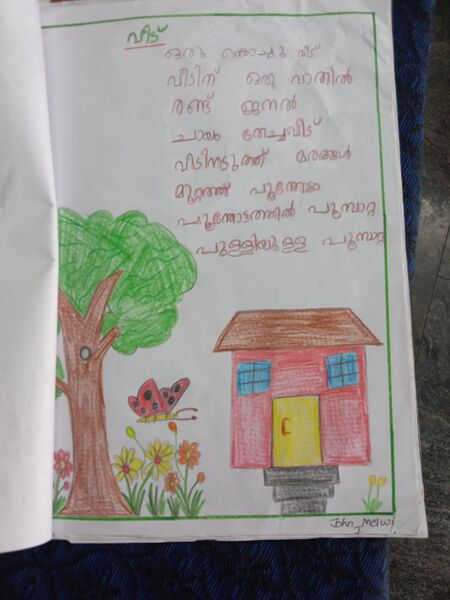 വീട്
ഒരു കൊച്ചു വീട്
വീടിന് ഒരു വാതിൽ
രണ്ട് ജനൽ
ചായം തേച്ചവീട്
വീടിനടുത്ത് മരങ്ങൾ
മുറ്റത്ത് പൂന്തോട്ടം
പൂന്തോട്ടത്തിൽ പൂമ്പാറ്റ
പുള്ളിയുള്ള പൂമ്പാറ്റ
John Melwi
I